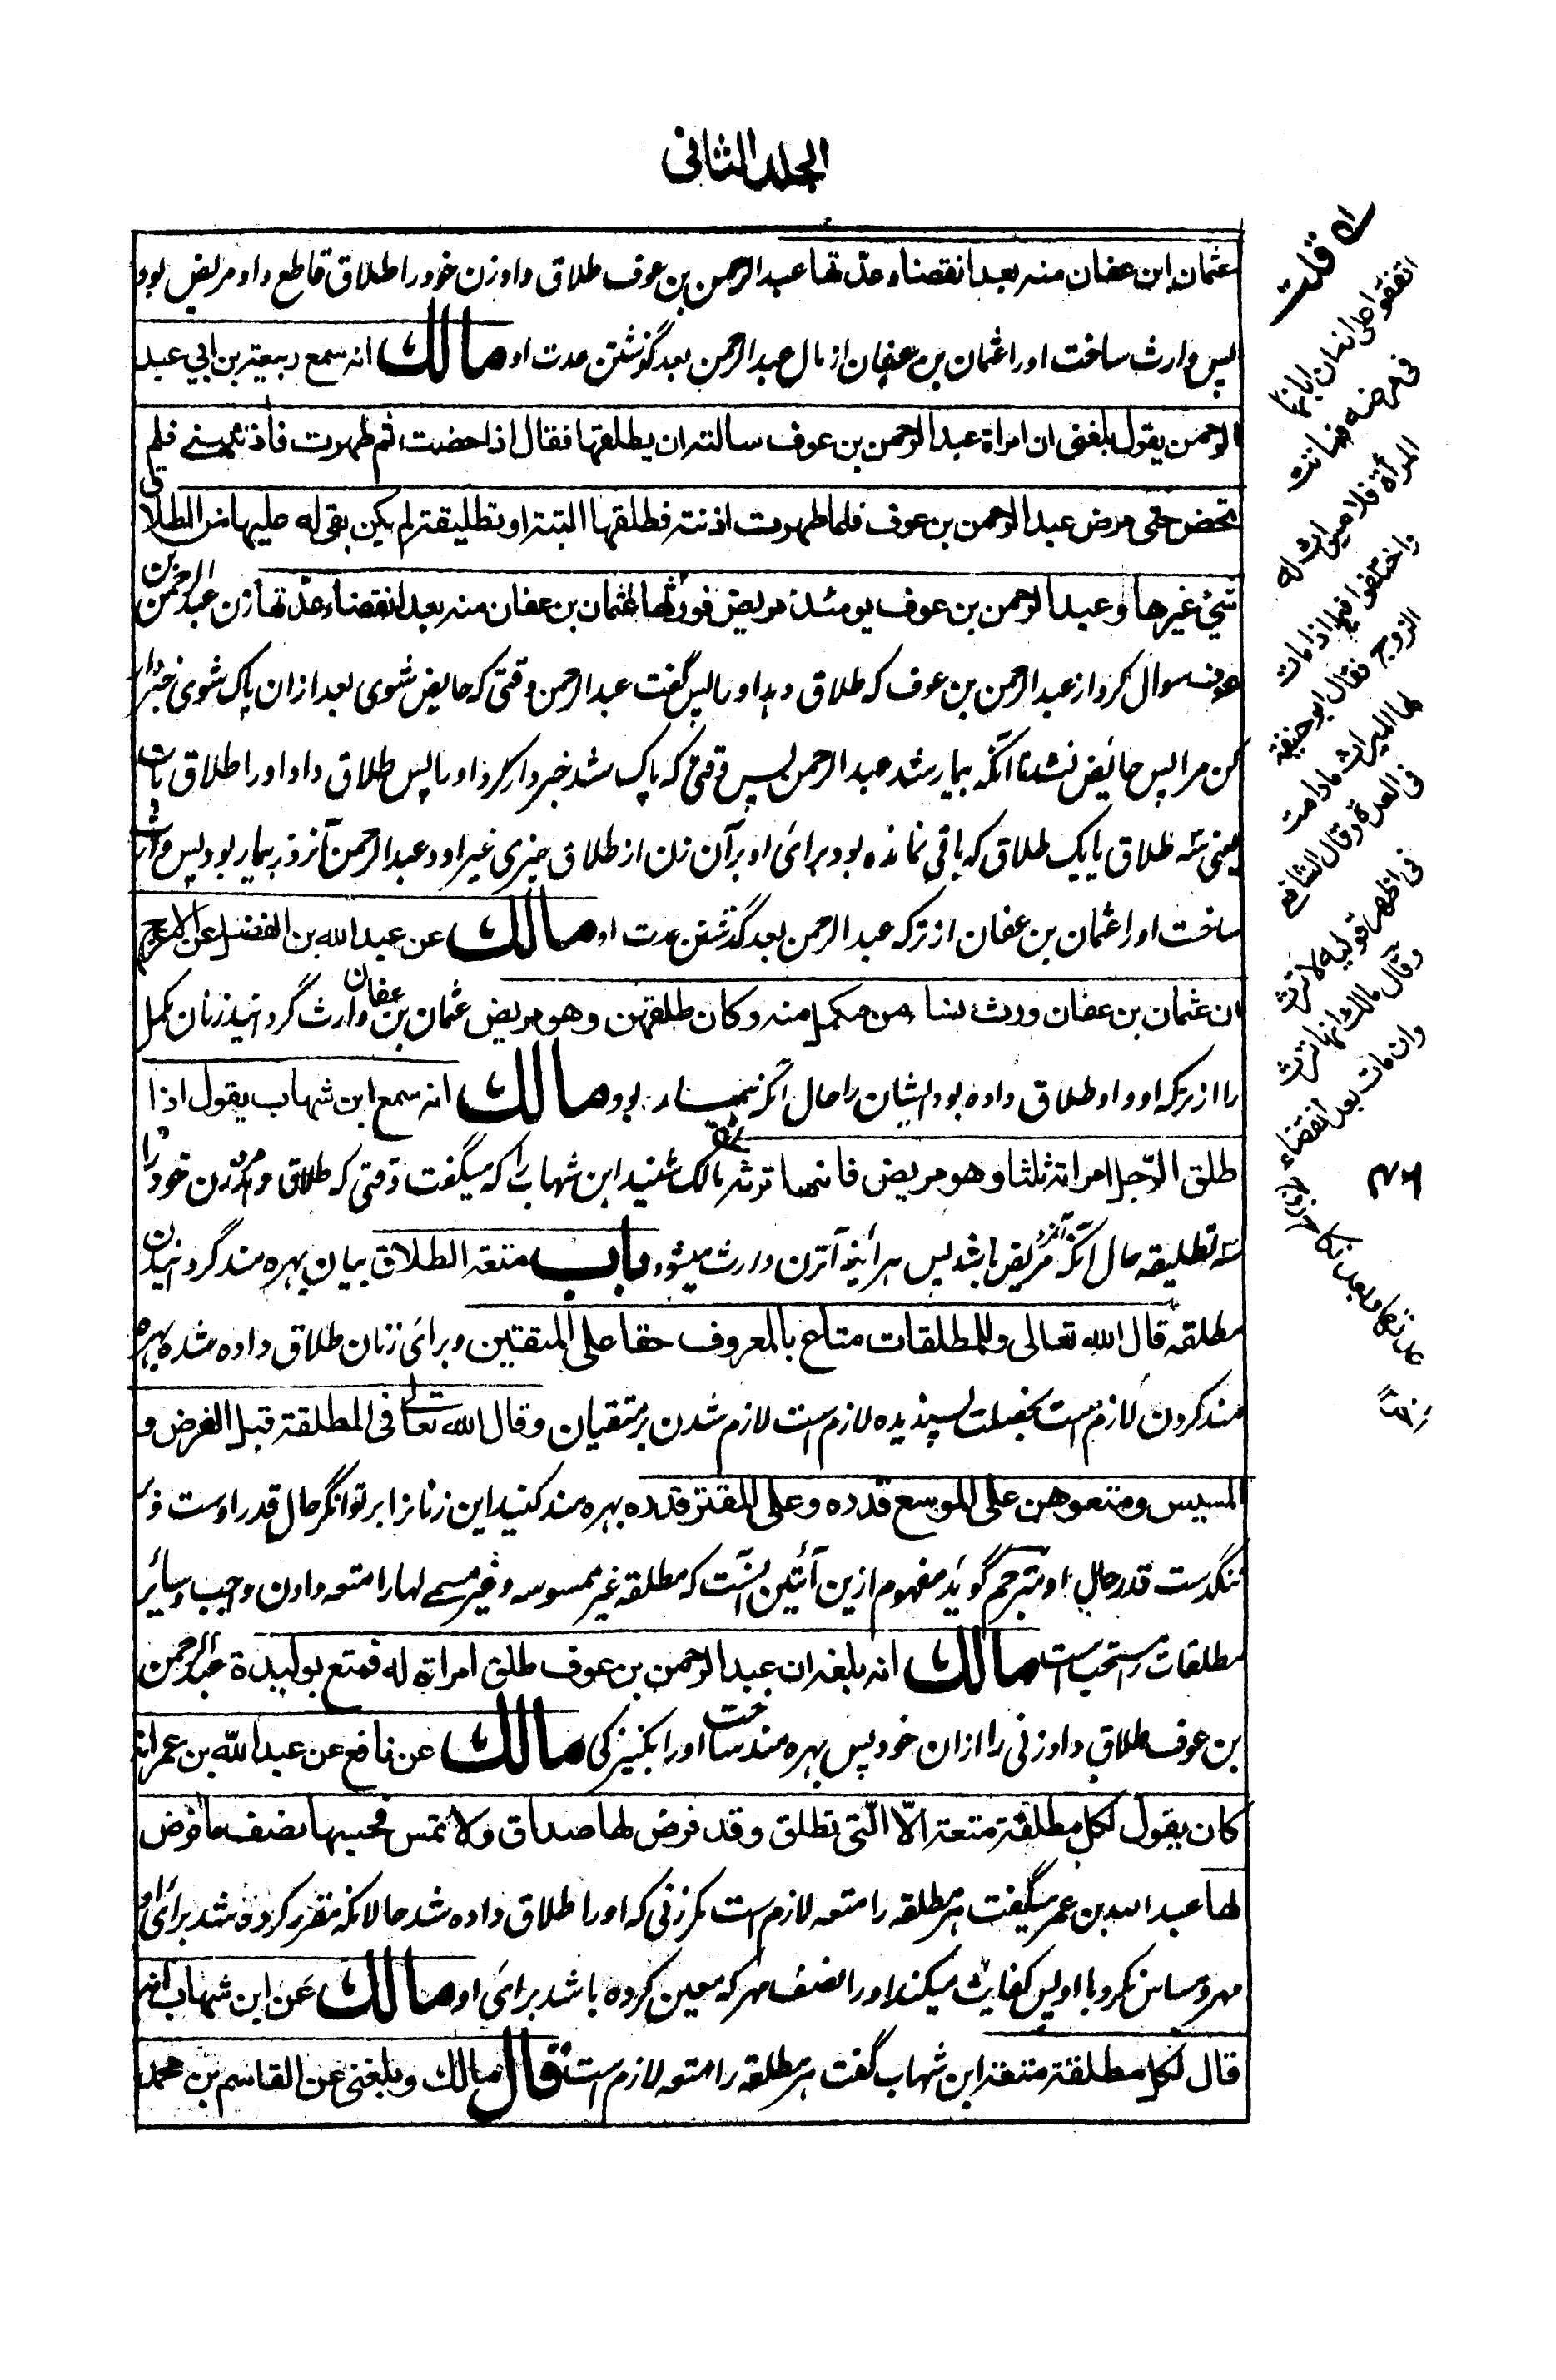 الجلد الثانى
عثمان ابن عفان منه بعد انقضاء عدّتها عبدالرحمن بن عوف طلاق داد زن خود را طلاق قاطع و او مریض بود
پس وارث ساخت او را عثمان بن عفان از مال عبدالرحمن بعد گذشتن عدت او مالك انه سمع ربيعة بن ابي عبد
الرحمن يقول بلغنى ان امراة عبد الرحمن بن عوف سالته ان يطلقها فقال اذا حضت ثم طهرت فأذنينى فلم
تحض حتى مرض عبد الرحمن بن عوف فلما طهرت اذنته فطلقها البتة او تطليقة لم يكن بقى له عليها من الطلاق
شيئ غيرها و عبد الرحمن بن عوف يومئذ مريض فورثها عثمان بن عفان منه بعد انقضاء عدّتها زن عبدالرحمن بن
عوف سوال کرد از عبدالرحمن بن عوف که طلاق دهد او را پس گفت عبدالرحمن وقتی که حایض شوی بعد ازان پاک شوی خبردار
کن مرا پس حائض نشد تا آنکه بیمار شد عبدالرحمن پس وقتی که پاک شد خبردار کرد او را پس طلاق داد او را طلاق بات
یعنی سه طلاق یا یک طلاق که باقی نمانده بود برای او بر آن زن از طلاق چیزی غیر او و عبدالرحمن آنروز بیمار بود پس وارث
ساخت او را عثمان بن عفان از ترکه عبدالرحمن بعد گذشتن عدت او مالك عن عبد الله بن الفضل عن الاعرج
ان عثمان بن عفان ورث نساء بن مكمل منه وكان طلقهن وهو مريض عثمان بن عفان وارث گردانید زنان مکمل
را از ترکه او و او طلاق داده بود ایشان را حال آنکه بیمار بود مالك انه سمع ابن شهاب يقول اذا
طلق الرّجل امراته ثلثا وهو مريض فانها ترثه مالک شنید ابن شهاب را که میگفت وقتی که طلاق دهد مرد زن خود را
سه تطلیقه حال آنکه آنمرد مریض باشد پس هر آئینه آنزن وارث میشود باب متعة الطلاق بیان بهره مند گردانیدن
مطلقه قال الله تعالى وللمطلقات متاع بالمعروف حقا على المتقين و برای زنان طلاق داده شده بهره
مند کردن لازم ست بخصلت پسندیده لازم ست لازم شدن بر متقیان وقال الله تعالى فى المطلقة قبل الفرض و
المسيس ومتعوهن على الموسع قدره وعلى المقتر قدره بهره مند کنید این زنانرا بر توانگر حال قدر اوست و بر
تنگدست قدر حال او مترجم گوید مفهوم ازین آئتین آنست که مطلقه غیر ممسوسه و غیر مسمی لها را متعه دادن واجب و سائر
مطلقات را مستحب است مالك انه بلغه ان عبد الرحمن بن عوف طلق امراة له فمتع بوليدة عبدالرحمن
بن عوف طلاق داد زنی را ازان خود پس بهره مند ساخت او را بکنیزکی مالك عن نافع عن عبد الله بن عمر انه
كان يقول لكل مطلقة متعة الّا الّتى تطلق وقد فرض لها صداق ولا تمس فحسبها نصف ما فرض
لها عبدالله بن عمر میگفت هر مطلقه را متعه لازم ست مگر زنی که او را طلاق داده شد حالانکه مقرر کرده شد برای او
مهر و مساس نکرد با او پس کفایت میکند او را نصف مهر که معین کرده باشد برای او مالك عن ابن شهاب انه
قال لكل مطلقة متعة ابن شهاب گفت هر مطلقه را متعه لازم است قال مالك وبلغنى عن القاسم بن محمد
قلت
اتفقوا على انه ان ابانها
فى مرضه فماتت
المرأة فلا ميراث له
واختلفوا فيما اذا مات
الزوج فقال ابو حنيفة
لها الميراث ما دامت
فى العدة وقال الشافعى
فى اظهر قوليه لا ترث
وقال مالك انها ترث
وان مات بعد انقضاء
عدتها وبعد نكاح